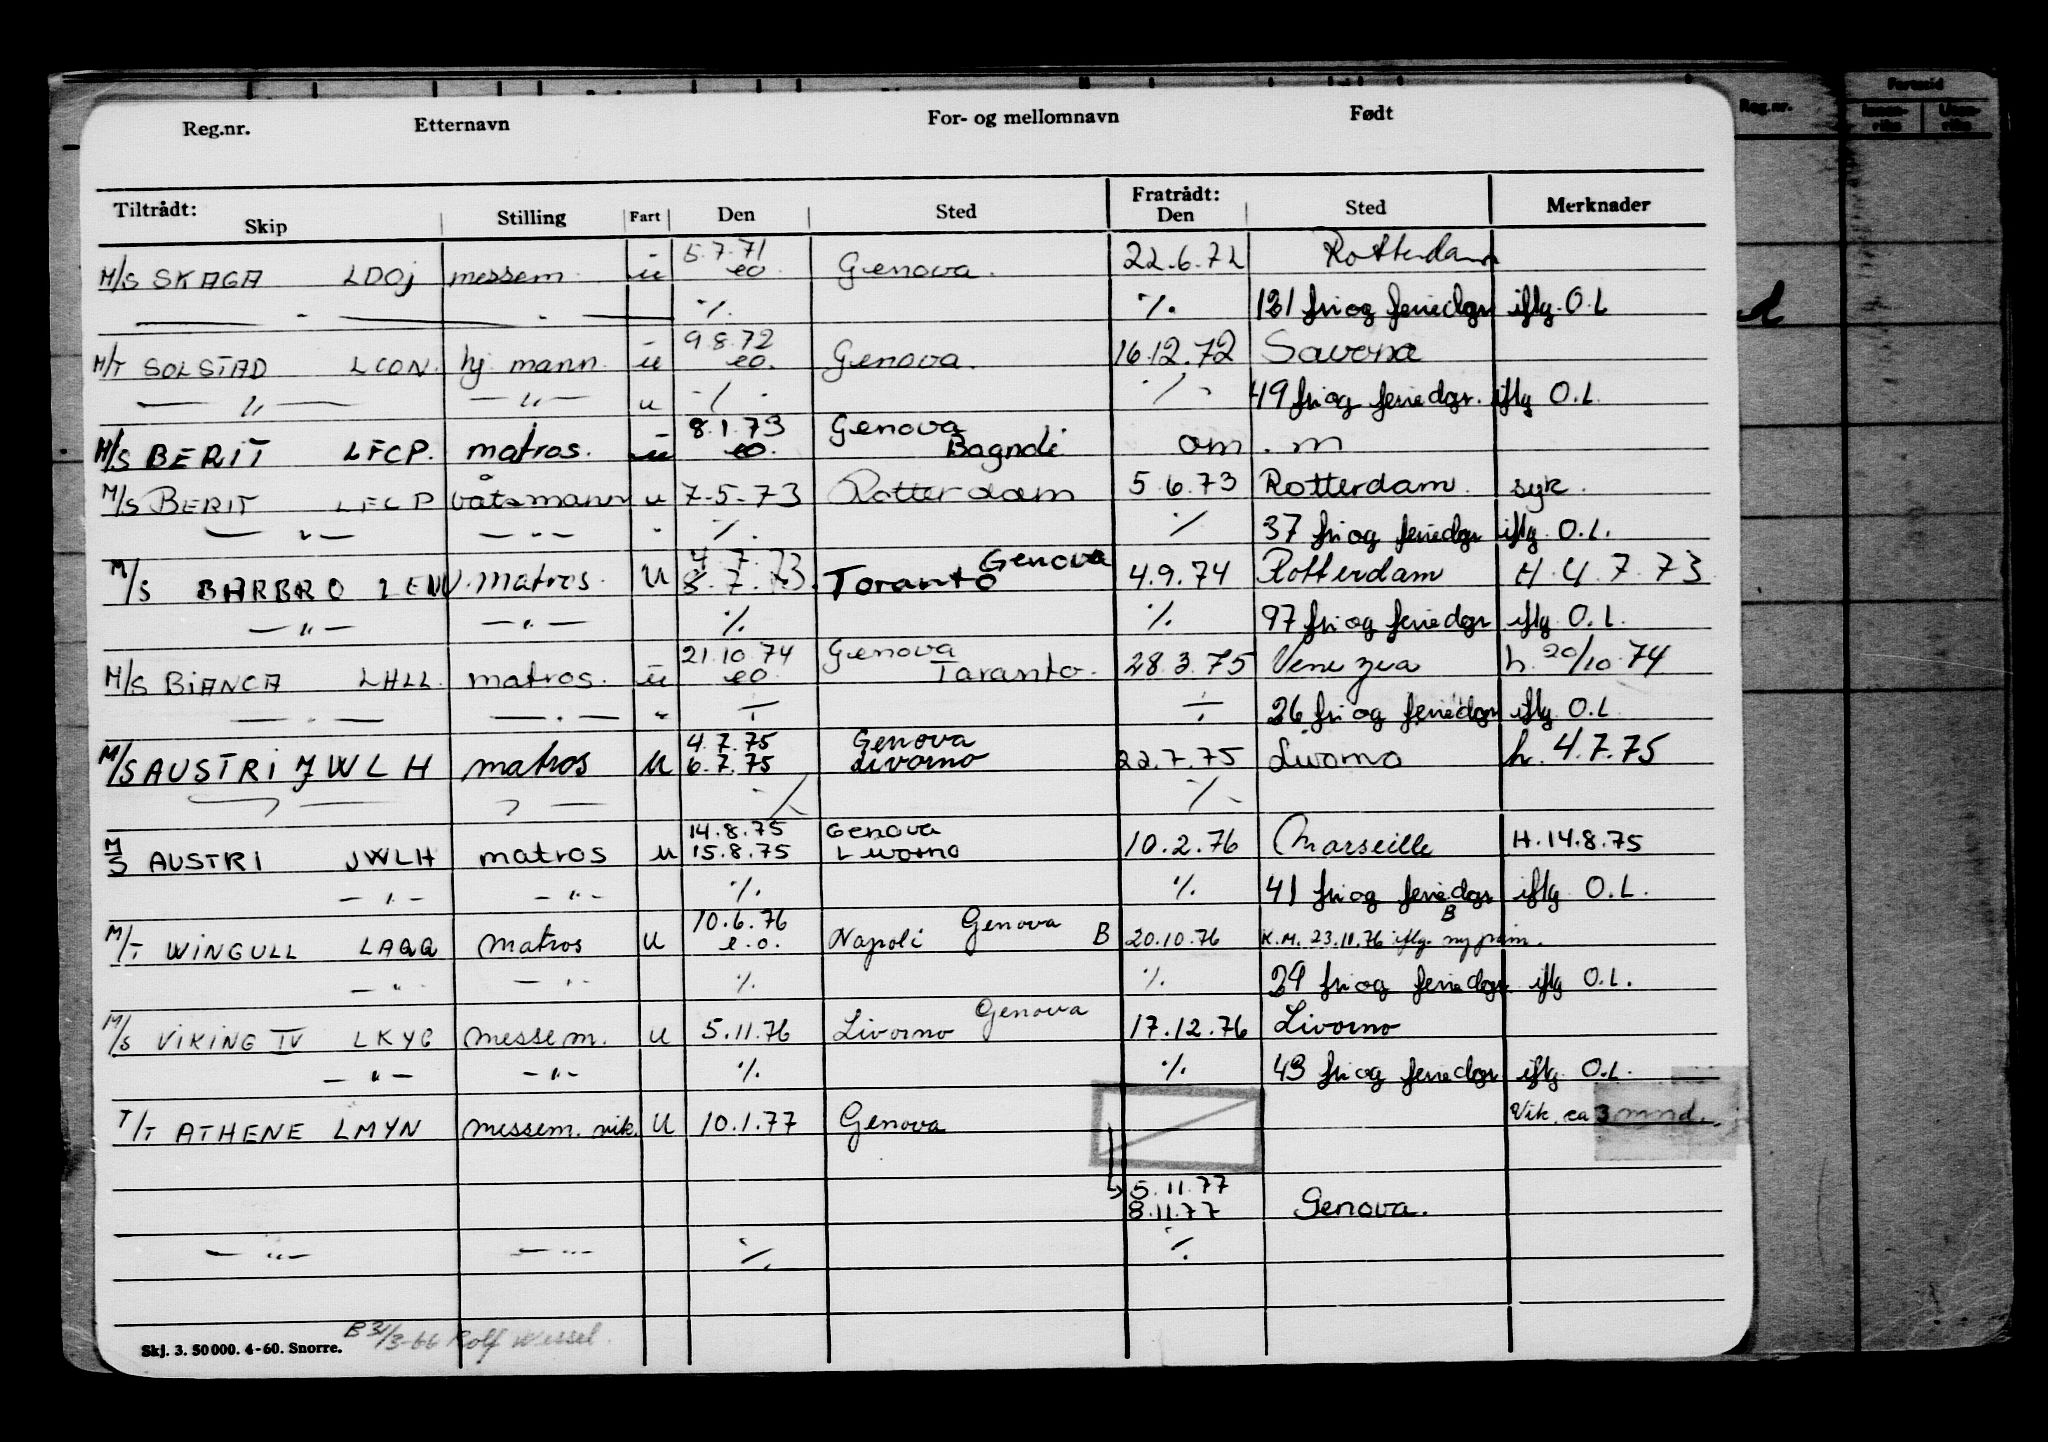 Reg.nr. Etternavn For- og mellomnavn Født
Tiltrådt: Fratrådt:
Skip Stilling Fart Den Sted Den Sted Merknader
5.7.71
M/S SKAGA LDOJ messem. u eo. Genova. 22.6.72 Rotterdam
— " — ٪. ٪. 121 fri og feriedgr iflg. O.L
9.8.72
M/T SOLSTAD LCON. hj. mann. u eo. Genova. 16.12.72 Savona
— " — — " — u ٪. ٪. 49 fri og feriedgr. iflg O.L.
8.1.73 Genova
M/S BERIT LFCP. matros. u eo. Bagnoli om. m
M/S BERIT LFCP båtsmann u 7-5-73 Rotterdam 5.6.73 Rotterdam. syk.
— " — — " — " ٪. ٪ 37 fri og feriedgr iflg. O.L.
4.7.73 Genova
M/S BARBRO matros. u 8.7.73. Taranto 4.9.74 Rotterdam H. 4.7.73
— " — — " — ٪. ٪. 97 fri og feriedgr iflg. O.L.
21.10.74 Genova
M/S BIANCA LHLL. matros. u eo. Taranto. 28.3.75 Venezia h. 20/10.74
— " — — " — " ÷ ÷ 26 fri og feriedgr iflg O.L
4.7.75 Genova
M/S AUSTRI JWLH matros u 6.7.75 Livorno 22.7.75 Livorno h. 4.7.75
— " — — " — ٪ ٪.
14.8.75 Genova
M/S AUSTRI JWLH matros u 15.8.75 Livorno 10.2.76 Marseille H.14.8.75
— " — — " — ٪. ٪. 41 fri og feriedgr iflg. O.L.
10.6.76 Genova B
M/T WINGULL LAQQ matros u e.o. Napoli B 20.10.76 K.M. 23.11.76 iflg.
— " — — " — ٪. ٪. 24 fri og feriedgr iflg O.L.
Genova
M/S VIKING IV LKYG messem. u 5.11.76 Livorno 17.12.76 Livorno
— " — — " — ٪. ٪. 43 fri og feriedgr iflg. O.L.
T/T ATHENE LMYN messem. vik. u 10.1.77 Genova Vik. ca 3 mnd.
5.11.77
8.11.77 Genova.
— " — — " — ٪. ٪.
Skj. 3. 50 000. 4-60. Snorre. B 31/3-66 Rolf Wessel.
Reg.nr.